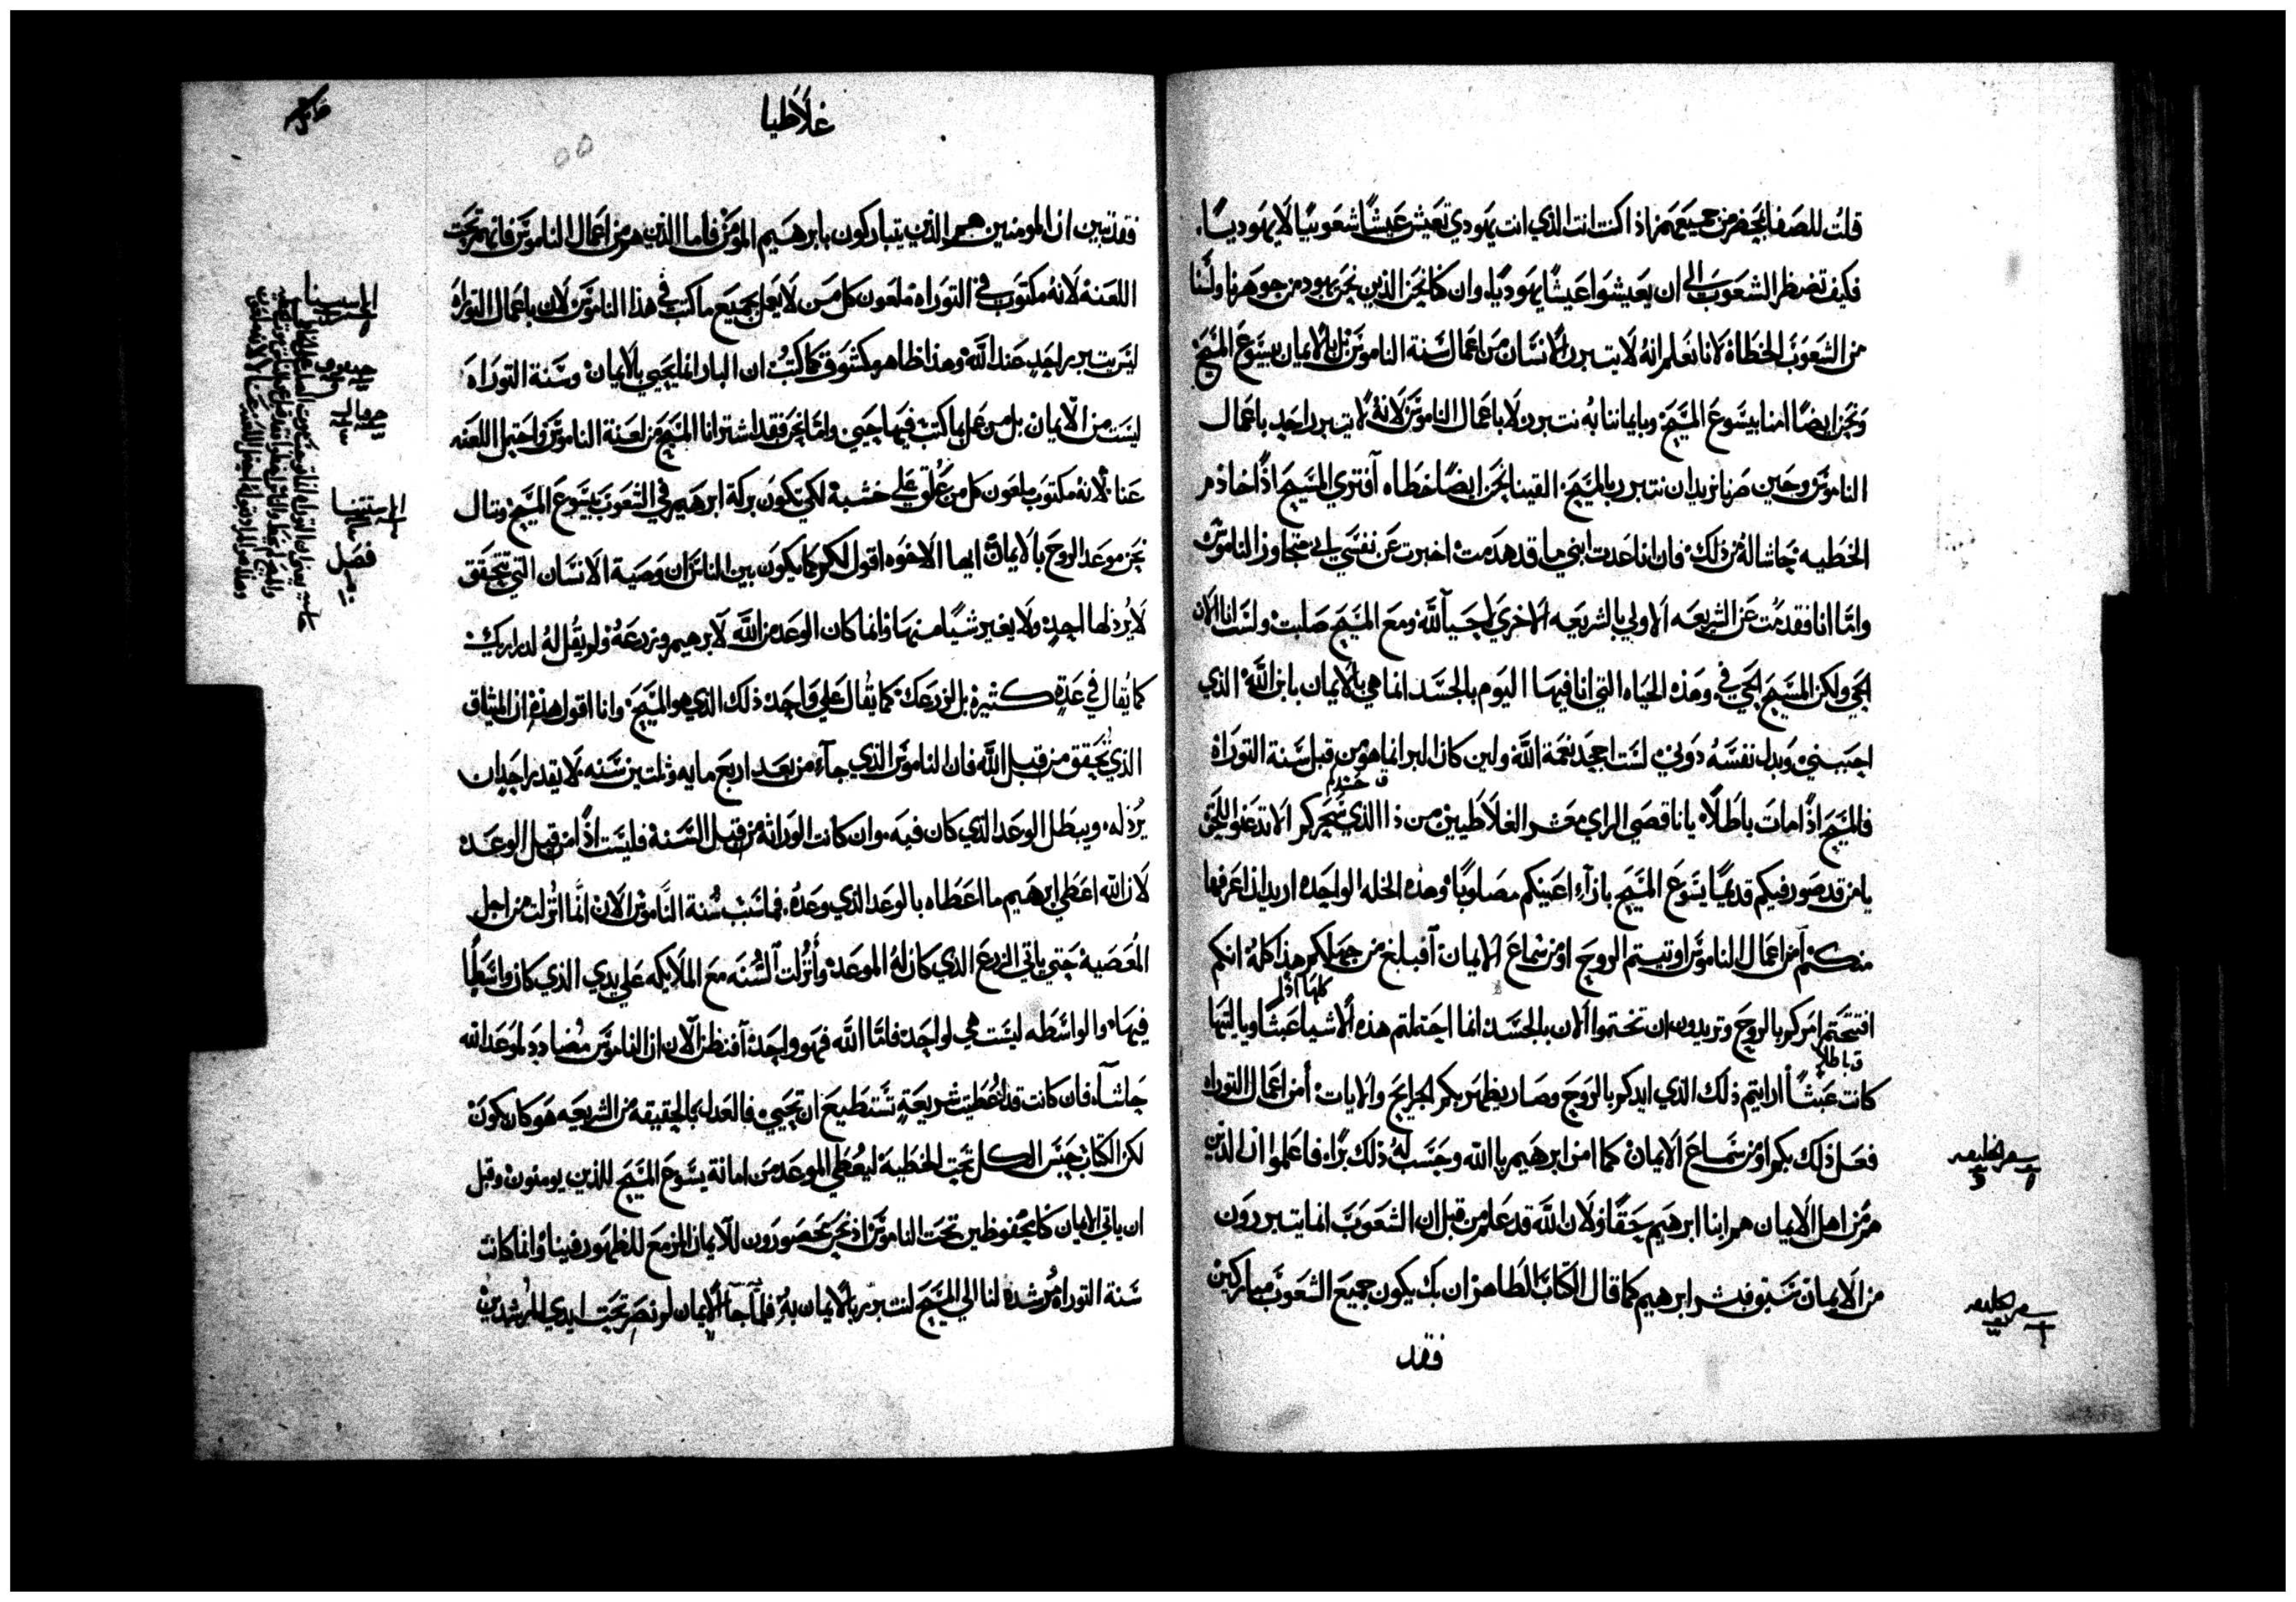 قلت للصفا بمحضر من جميعهم اذا كنت انت الذي انت يهودي تعيش عيشًا شعوبيًا لا يهوديًا.
فكيف تضطر الشعوب الى ان يعيشوا عيشًا يهوديًا. وان كنا نحن الذين نحن يهود من جوهرنا ولسنا
من الشعوب الخطاة لانا نعلم انه لا يتبرر الانسان من اعمال سنة الناموس بل بالايمان بيسوع المسيح
ونحن ايضًا امنا بيسوع المسيح وبايماننا به نتبرر لا باعمال الناموس لانه لا يتبرر احد باعمال
الناموس وحين صرنا نريد ان نتبرر بالمسيح القينا نحن ايضًا خطاه أفترى المسيح اذًا خادم
الخطيه حاشا له من ذلك فان انا عدت ابني ما قد هدمت اخبرت عن نفسي باني متجاوز الناموس
واما انا فقد مت عن الشريعه الاولي بالشريعه الاخري لاحيا لله ومع المسيح صلبت ولست انا الان
احي ولكن المسيح الحي في وهذه الحياه التي انا فيها اليوم بالجسد انما هي بالايمان بابن الله الذي
احببني وبدل نفسه دوني لست اجحد نعمة الله ولين كان البر انما هو من قبل سنة التوراة
فالمسيح اذًا مات باطلًا يا ناقصي الراي معشر الغلاطيين من ذا الذي سحركم الا تدعنوا للحق
يا من قد صور فيكم قديمًا يسوع المسيح بازاء اعينكم مصلوبًا وهذه الخله الواحدة اريد ان اعرفها
منكم أمن اعمال الناموس اوتيتم الروح او من سماع الايمان أفبلغ من جهلكم هذا كله انكم
افتتحتم امركم بالروح وتريدون ان تختموا الان بالجسد انما احتملتم هذه الاشيا عبثًا ويا ليتها
كانت عبثًا أرايتم ذلك الذي ايدكم بالروح وصار يظهر بكم الجرايح والايات أمن اعمال التوراه
فعل ذلك بكم او من سماع الايمان كما امن ابرهيم بالله وحسب له ذلك برًا. فاعلموا ان الذين
هم من اهل الايمان هم ابنا ابرهيم حقًا ولان الله قد علم من قبل ان الشعوب انما يتبررون
من الايمان سبق فبشر ابرهيم كما قال الكتاب الطاهر ان بك يكون جميع الشعوب مباركين
فقد
سفر الخليقه
غلاطيا
فقد تبين ان المومنين هم الذين يتباركون بابرهيم المومن فاما الذين هم من اعمال الناموس فانهم تحت
اللعنة لانه مكتوب في التوراه ملعون كل من لا يعمل بجميع ما كتب في هذا الناموس لان باعمال التوراة
ليس يتبرر احد عند الله وهذا ظاهر مكشوف كما كتب ان البار انما يحيي بالايمان وسنة التوراة
ليست من الايمان بل من عمل بما كتب فيها حيي واما نحن فقد اشترانا المسيح من لعنة الناموس واحتمل اللعنه
عنا لانه مكتوب ملعون كل من علق علي خشبة لكي تكون بركة ابرهيم في الشعوب بيسوع المسيح وننال
نحن موعد الروح بالايمان ايها الاخوه اقول لكم كما يكون بين الناس ان وصية الانسان التي تتحقق
لا يرذلها احد ولا يغير شيًا منها وانما كان الوعد من الله لابرهيم وزرعه ولم يقل له لذراريك
كما يقال في عدة كثيرة بل لزرعك كما يقال علي واحد ذلك الذي هو المسيح وانا اقول هذه ان الميثاق
الذي تحقق من قبل الله فان الناموس الذي جاء من بعد اربع مايه وثلثين سنه لا يقدر احد ان
يرذله. ويبطل الوعد الذي كان فيه. وان كانت الوراثه من قبل السنة فليست اذًا من قبل الوعد
لان الله اعطي ابرهيم ما اعطاه بالوعد الذي وعده. فما سبب سنة الناموس الان انما انزلت من اجل
المعصية حتي ياتي الزرع الذي كان له الموعد وأنزلت السنه مع الملايكه علي يدي الذي كان واسطًا
فيها والواسطه ليست هي لواحد فاما الله فهو واحد أفنظن الان ان الناموس مضادد لموعد الله
حاشا فان كانت قد اعطيت شريعة تستطيع ان تحيي فالعدل بالحقيقه من الشريعه هو كان يكون
لكن الكتاب حبس الكل تحت الخطية ليعطي الموعد من امانة يسوع المسيح للذين يومنون وقبل
ان ياتي الايمان كنا محفوظين تحت الناموس اذ نحن محصورون للايمان المزمع للظهور فينا وانما كانت
سنة التوراة مرشده لنا الي المسيح لنتبرر بالايمان به فلما جا الايمان لم نصر تحت ايدي المرشدين
الاستثنا
حبقوق
الاستثنا
فصل